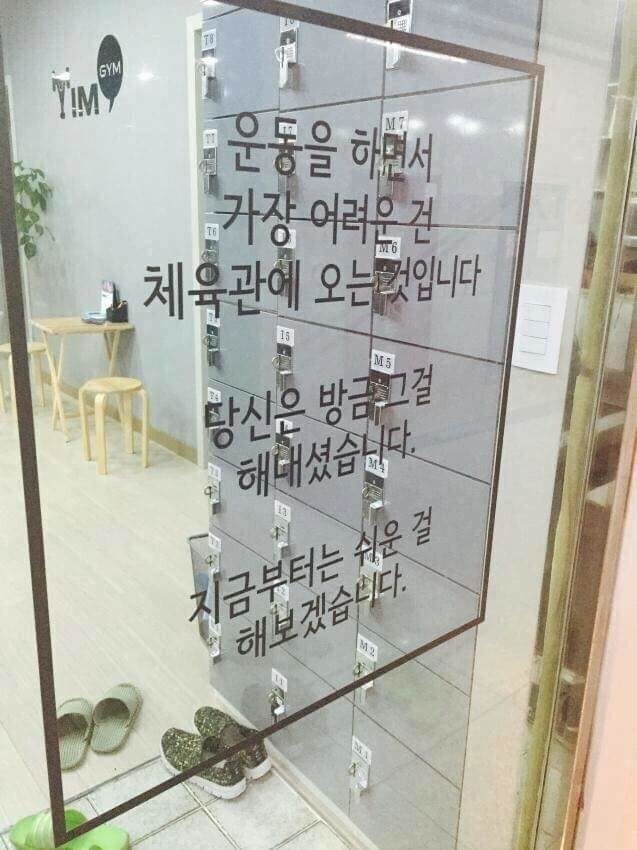 GYM
TIM
T8
T7
T6
I5
M7
M6
M5
M4
M2
M1
I3
I1
운동을 하면서
가장 어려운 건
체육관에 오는 것입니다
당신은 방금 그걸
해내셨습니다.
지금부터는 쉬운 걸
해보겠습니다.